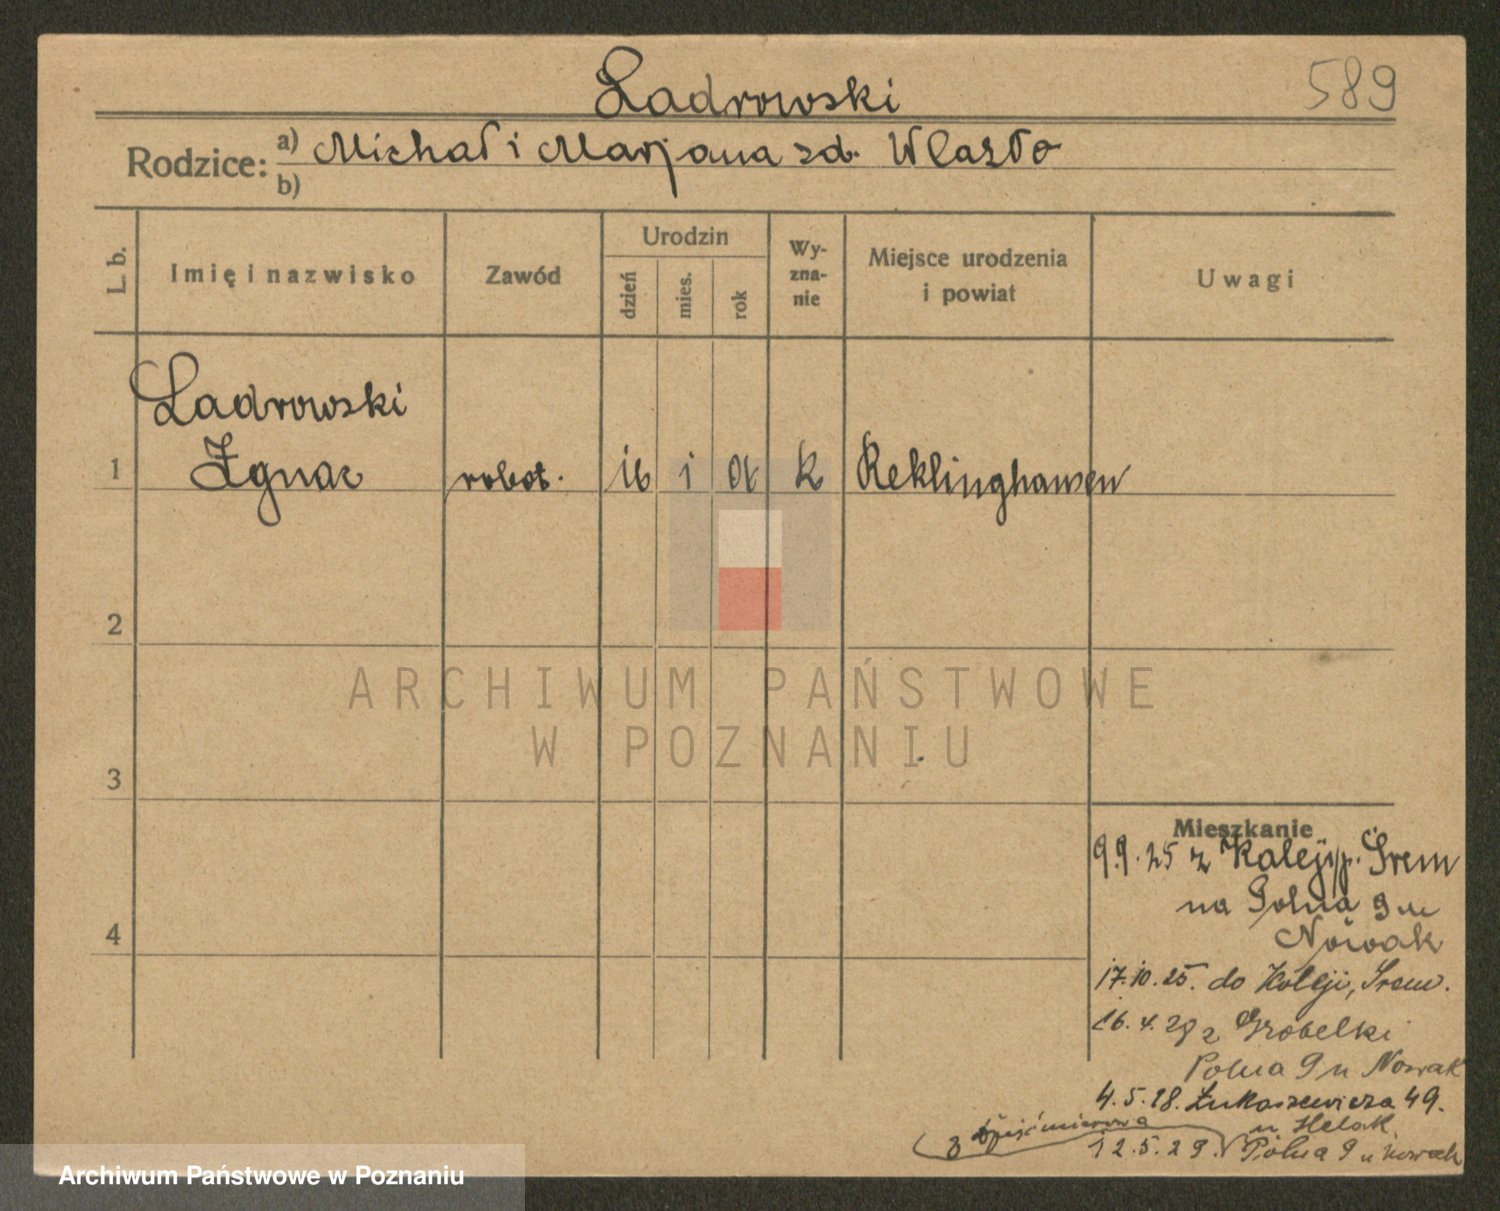 Ladrowski
589
Rodzice: a) Michał i Marjana zd. Wlazło
b)
L. b.
Imię i nazwisko
Zawód
Urodzin
dzień
mies.
rok
Wy-
zna-
nie
Miejsce urodzenia
i powiat
Uwagi
Ladrowski
1 Ignac robot. 16 1 01 k Reklinghausen
2
3
4
Mieszkanie
9.9.25 z Kaleji p. Śrem
na Polna 9 u
Nowak
17.10.25. do Koleji, Śrem.
16.4.28 z Grobelki
Polna 9 u Nowak
4.5.28. Łukaszewicza 49.
u Helak
12.5.29. Polna 9 u Nowak
z
ARCHIWUM PAŃSTWOWE
W POZNANIU
Archiwum Państwowe w Poznaniu